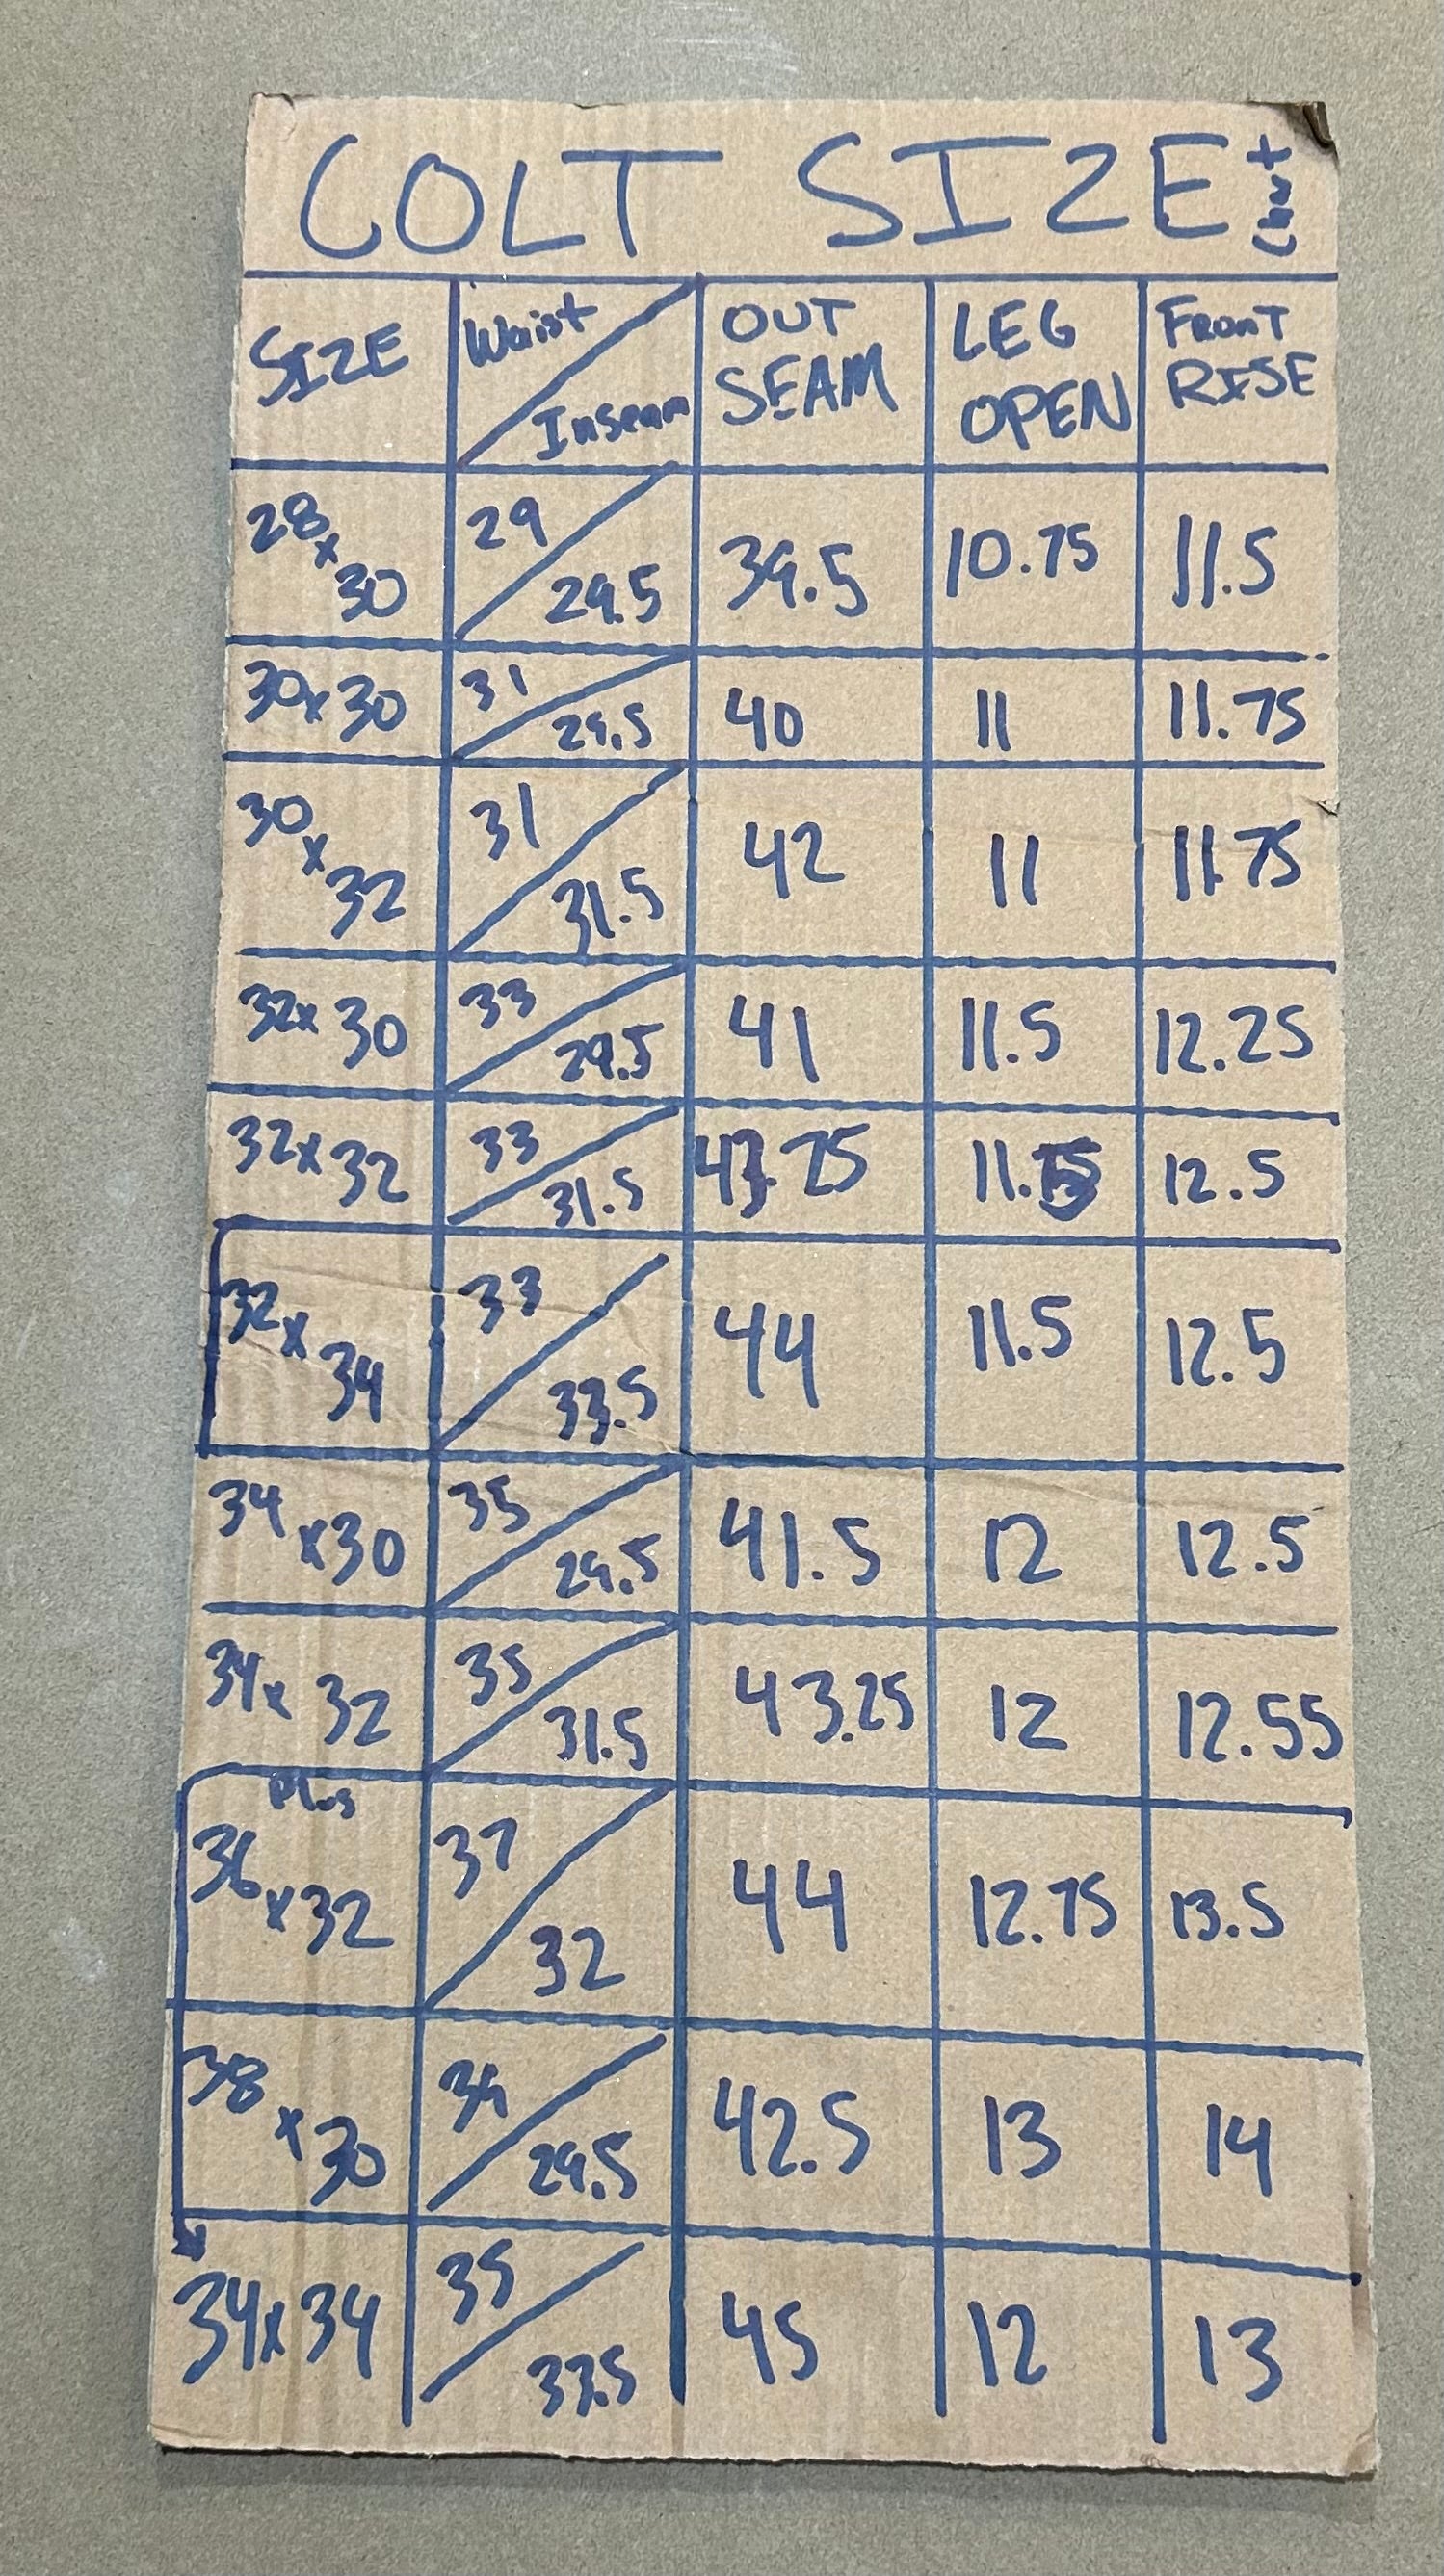 COLT SIZE Chart
SIZE Waist Inseam OUT SEAM LEG OPEN FRONT RISE
28x30 29 29.5 39.5 10.75 11.5
30x30 31 29.5 40 11 11.75
30x32 31 31.5 42 11 11.75
32x30 33 29.5 41 11.5 12.25
32x32 33 31.5 43.25 12.5
32x34 33 33.5 44 11.5 12.5
34x30 35 29.5 41.5 12 12.5
34x32 35 31.5 43.25 12 12.55
Plus
36x32 37 32 44 12.75 13.5
38x30 39 29.5 42.5 13 14
34x34 35 33.5 45 12 13